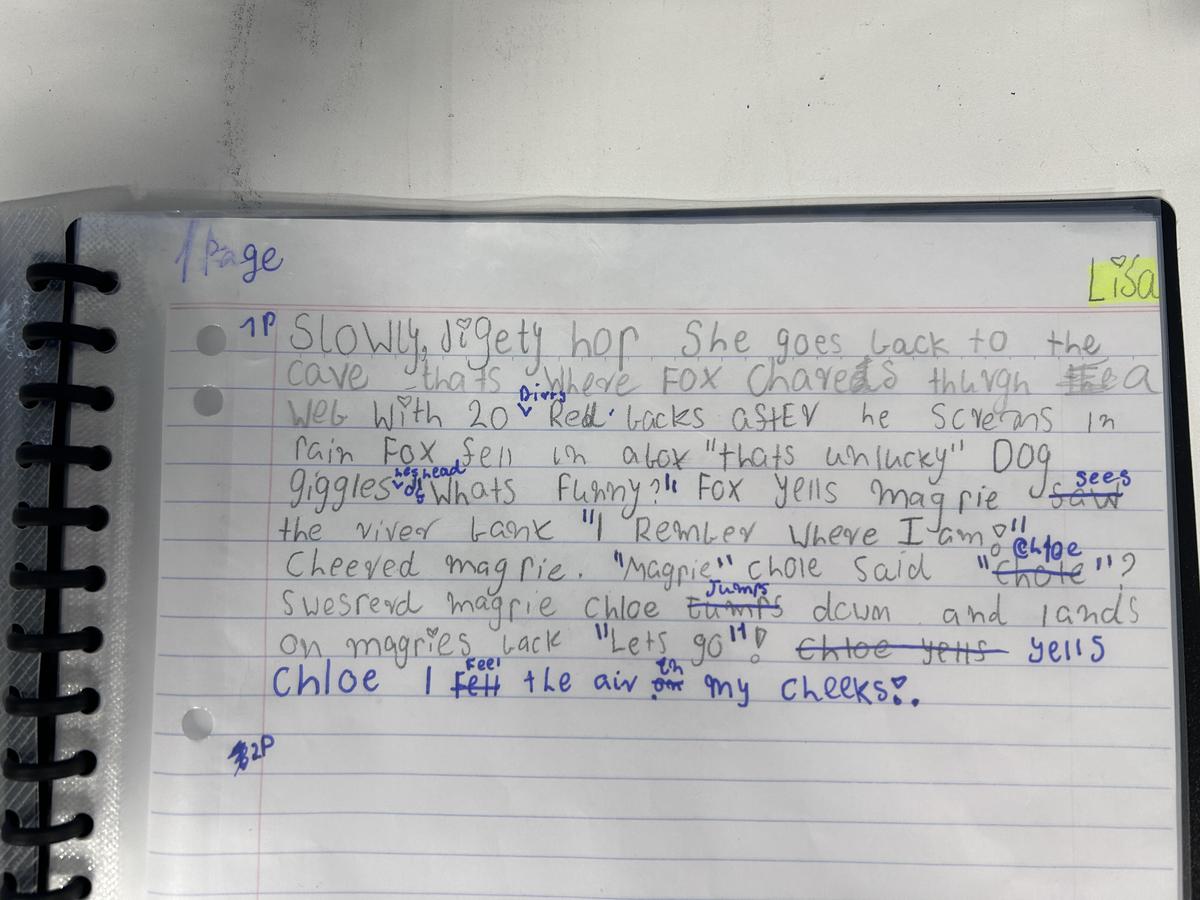 1 Page
Lisa
1P Slowly, Jigety hop She goes back to the
cave thats where Fox Chareds thurgh a
web with 20 Dirty Red backs after he screams in
pain Fox fell in a box "thats unlucky" Dog
giggles hes head "Whats funny?" Fox yells magpie saw sees
the river bank "I Rember where I am!"
Cheered magpie. "Magpie" chole said "Chole Chloe"?
Swesrerd magpie Chloe Jumps down and lands
on magpies back "Lets go"! Chloe yells yells
Chloe I Fell Feel the air on in my cheeks!.
2P